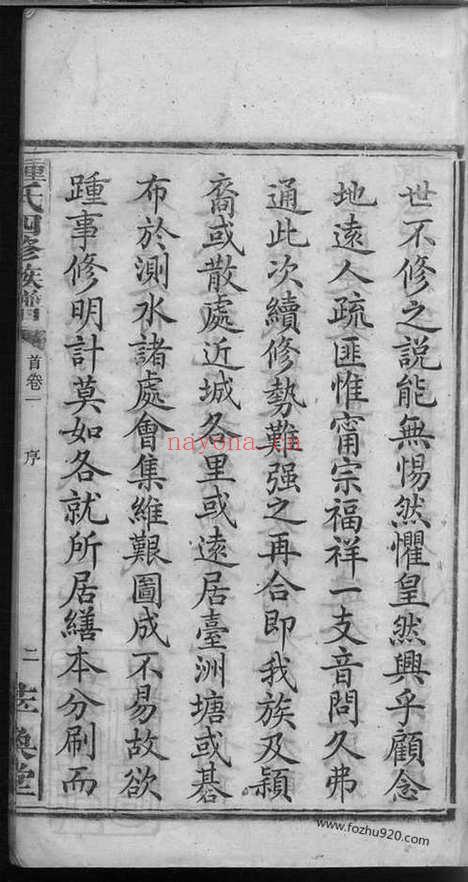 世不修之説能無惕然懼皇然興乎顧念
地遠人疏匪惟甯宗福祥一支音問久弗
通此次續修勢難强之再合即我族及穎
裔或散處近城各里或遠居臺洲塘或碁
布於測水諸處會集維艱圖成不易故欲
踵事修明計莫如各就所居繕本分刷而
鍾氏四修族譜
首卷一
序
二
堂
nayona.cn
www.fozhu920.com